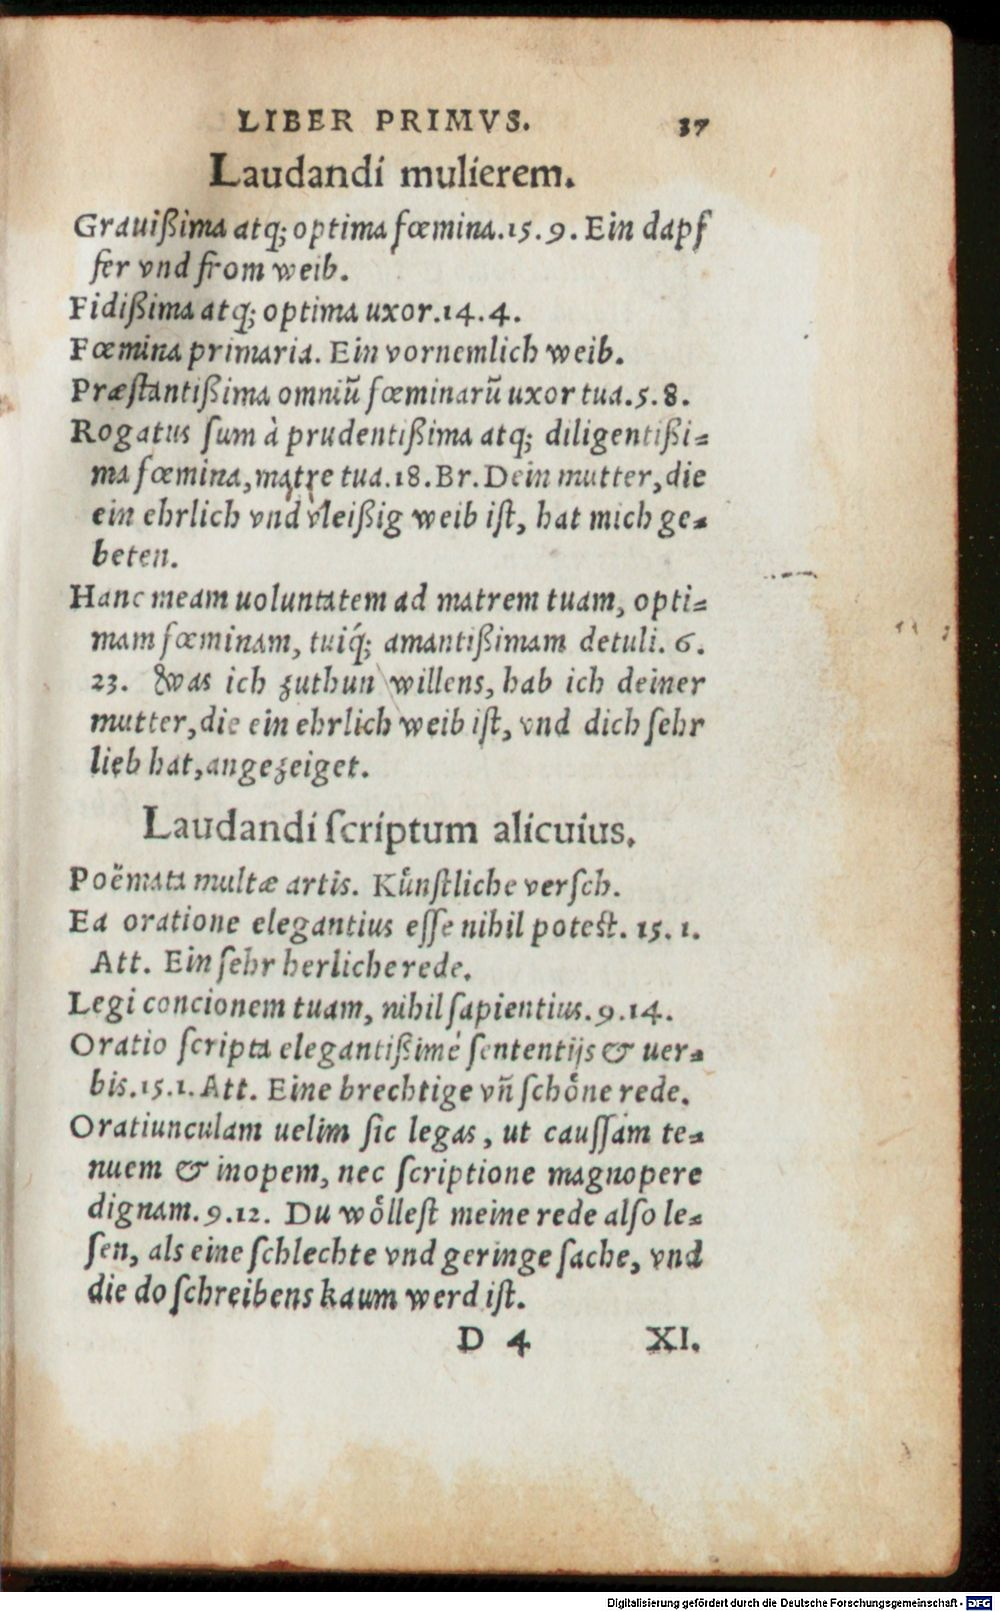 LIBER PRIMVS. 37
Laudandi mulierem.
Grauißima atq; optima fœmina.15.9. Ein dapf
fer vnd from weib.
Fidißima atq; optima uxor.14.4.
Fœmina primaria. Ein vornemlich weib.
Præſtantißima omniũ fœminarũ uxor tua.5.8.
Rogatus ſum à prudentißima atq; diligentißi=
ma fœmina, matre tua.18.Br. Dein mutter, die
ein ehrlich vnd vleißig weib iſt, hat mich ge=
beten.
Hanc meam uoluntatem ad matrem tuam, opti=
mam fœminam, tuiq́; amantißimam detuli. 6.
23. Was ich zuthun willens, hab ich deiner
mutter, die ein ehrlich weib iſt, vnd dich ſehr
lieb hat, angezeiget.
Laudandi ſcriptum alicuius.
Poëmata multæ artis. Kuͤnſtliche verſch.
Ea oratione elegantius eſſe nihil poteſt. 15. 1.
Att. Ein ſehr herliche rede.
Legi concionem tuam, nihil ſapientius.9.14.
Oratio ſcripta elegantißimè ſententijs & uer=
bis.15.1.Att. Eine brechtige vñ ſchoͤne rede.
Oratiunculam uelim ſic legas, ut cauſſam te=
nuem & inopem, nec ſcriptione magnopere
dignam.9.12. Du woͤlleſt meine rede alſo le=
ſen, als eine ſchlechte vnd geringe ſache, vnd
die do ſchreibens kaum werd iſt.
D 4 XI.
Digitalisierung gefördert durch die Deutsche Forschungsgemeinschaft - DFG